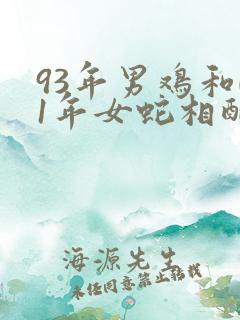 93年男鸡和
1年女蛇相配
海源先生
未经同意禁止转载